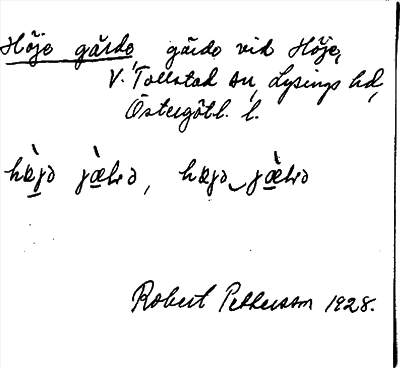 Höje gärde, gärde vid Höje,
V. Tollstad sn, Lysings hd,
Östergötl. l.
Robert Pettersson 1928.